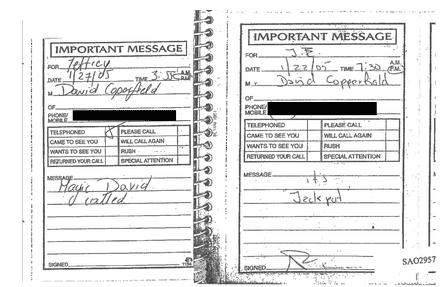 IMPORTANT MESSAGE
FOR Jeffrey
DATE 1/27/05 TIME A.M. P.M.
M David Coperfield
OF
PHONE/
MOBILE
TELEPHONED PLEASE CALL
CAME TO SEE YOU WILL CALL AGAIN
WANTS TO SEE YOU RUSH
RETURNED YOUR CALL SPECIAL ATTENTION
MESSAGE
Magic David
called
SIGNED
1184
IMPORTANT MESSAGE
FOR J.E
DATE 1/22/05 TIME 7:30 A.M. P.M.
M r. David Copperfield
OF
PHONE/
MOBILE
TELEPHONED PLEASE CALL
CAME TO SEE YOU WILL CALL AGAIN
WANTS TO SEE YOU RUSH
RETURNED YOUR CALL SPECIAL ATTENTION
MESSAGE it's
"Jackpot"
SIGNED
SAO2957